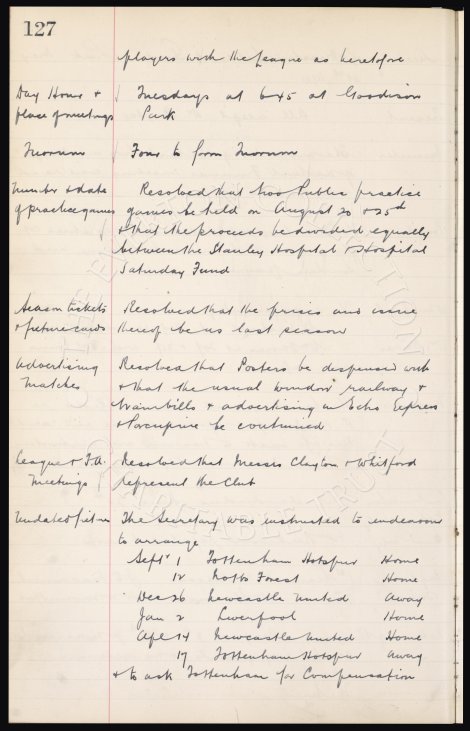 127
players with the League as heretofore
Day Hour & Tuesdays at 6.45 at Goodison
place of meetings Park
Quorum Four to form Quorum
Number & date Resolved that two Public practice
of practice games games be held on August 20 & 25th
& that the proceeds be divided equally
between the Stanley Hospital & Hospital
Saturday Fund
Season tickets Resolved that the prices and issue
& fixture cards thereof be as last season
Advertising Resolved that Posters be dispensed with
Matches & that the usual window railway &
trambills & advertising in Echo Express
& Porcupine be continued
League & F.A. Resolved that Messrs Clayton & Whitford
Meetings represent the Club
Undated fixtures The Secretary was instructed to endeavour
to arrange
Septr 1 Tottenham Hotspur Home
12 Notts Forest Home
Dec 26 Newcastle United Away
Jan 2 Liverpool Home
Apl 14 Newcastle United Home
17 Tottenham Hotspur Away
& to ask Tottenham for Compensation